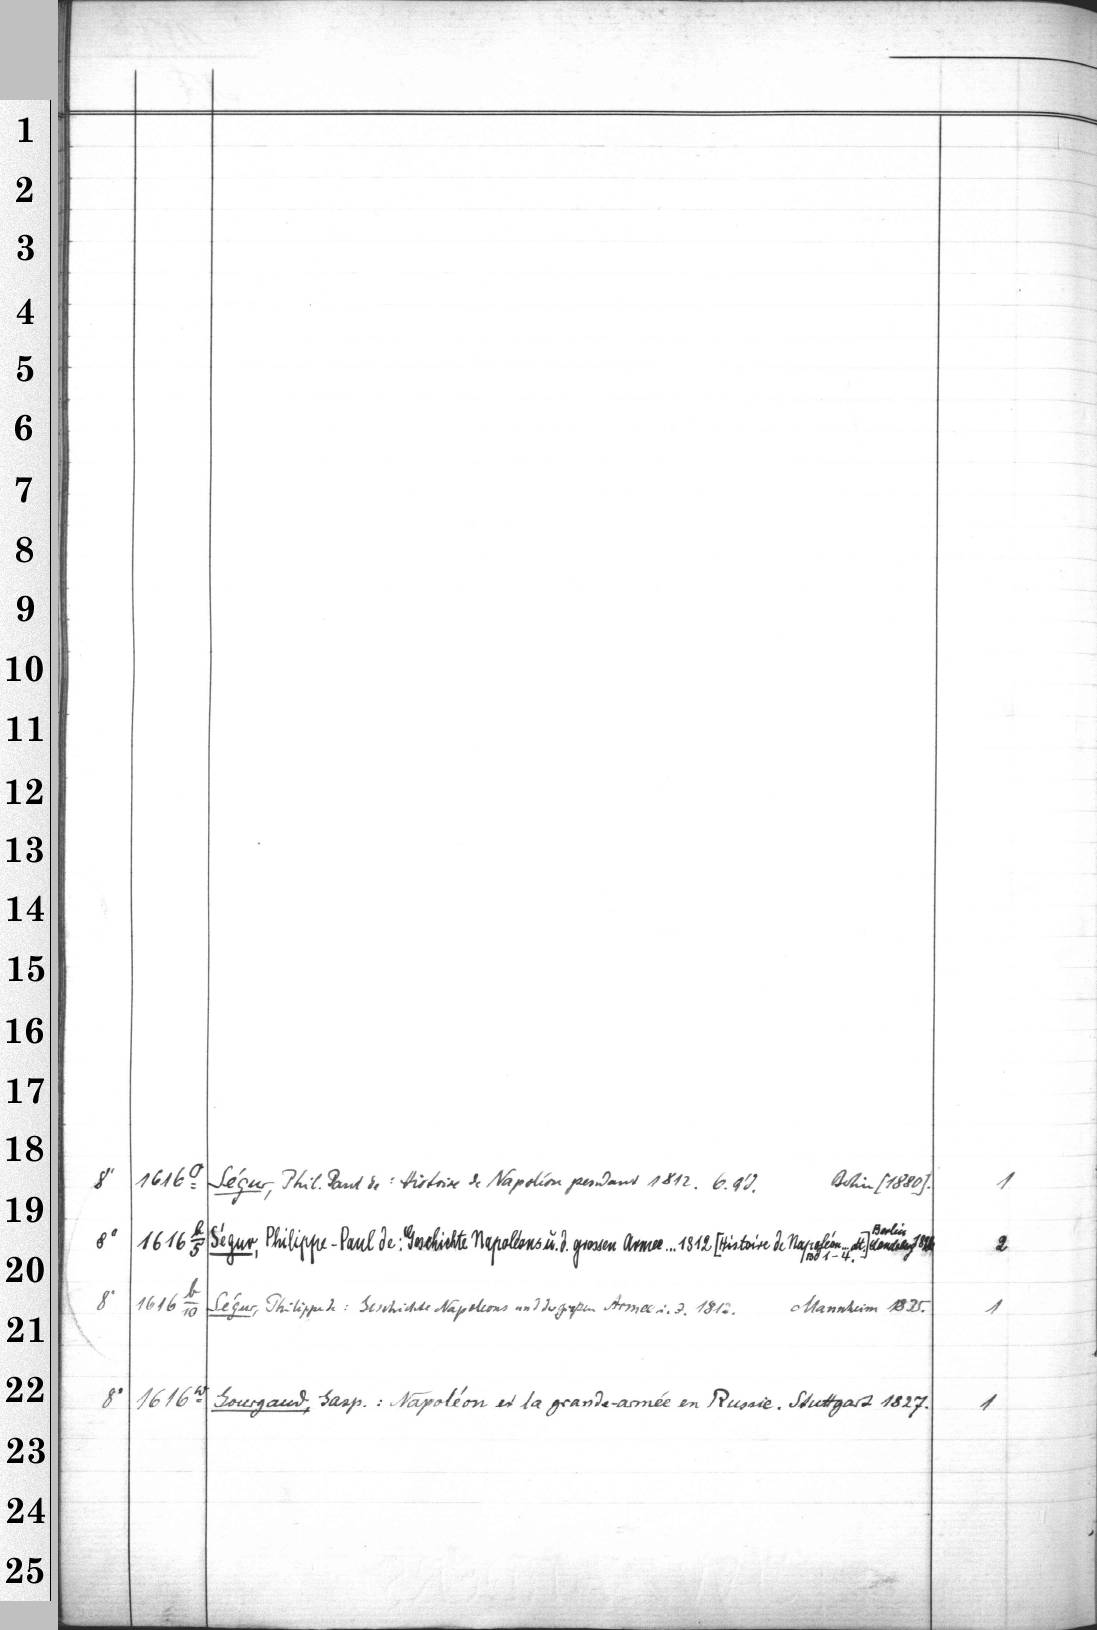 1
2
3
4
5
6
7
8
9
10
11
12
13
14
15
16
17
18
8° 1616 a Ségur, Phil. Paul de: Histoire de Napoléon pendant 1812. 6. éd. Berlin [1880]. 1
19
8° 1616 b/5 Ségur, Philippe-Paul de: Geschichte Napoléons u. d. grossen Armee... 1812 [Histoire de Napoléon... dt.] Bd 1-4. Berlin 2
20
8° 1616 b/10 Ségur, Philippe de: Geschichte Napoleons und der großen Armee i. J. 1812. Mannheim 1835. 1
21
22
8° 1616 w Gourgaud, Gasp.: Napoléon et la grande-armée en Russie. Stuttgart 1827. 1
23
24
25